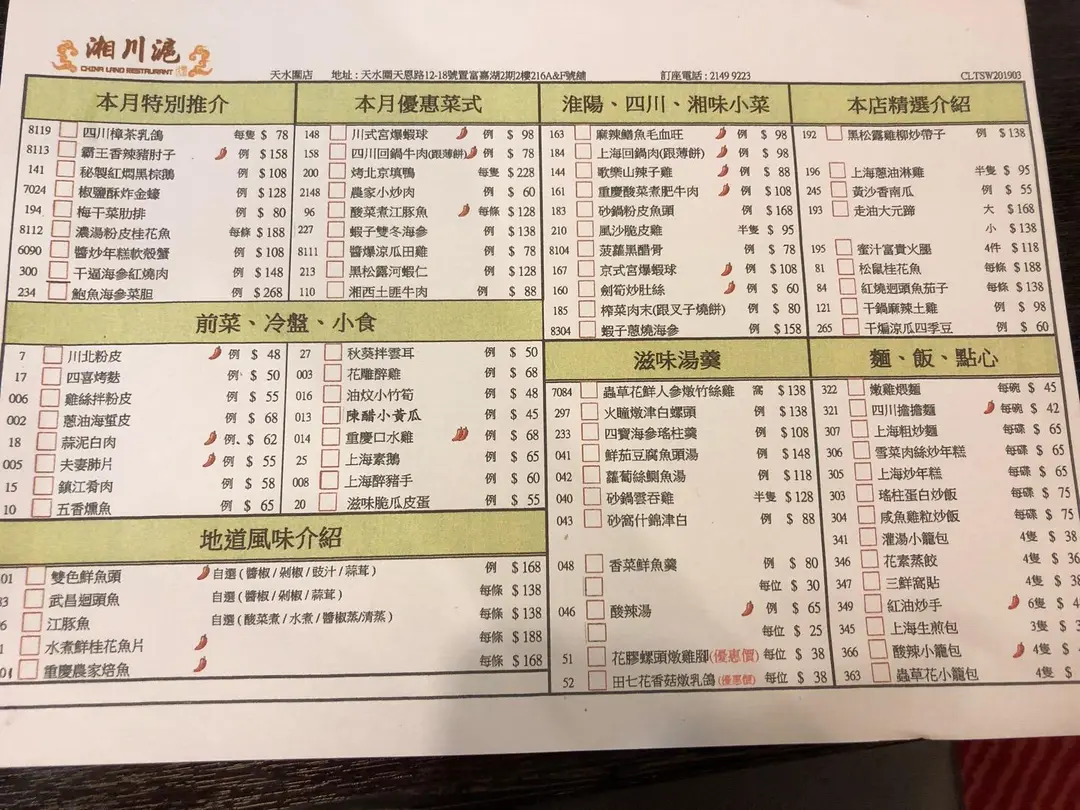 湘川滬
CHINA LAND RESTAURANT
天水圍店 地址：天水圍天恩路12-18號置富嘉湖2期2樓216A&F號舖 訂座電話：2149 9223 CLTSW201903
本月特別推介
8119 四川樟茶乳鴿 每隻 $ 78
8113 霸王香辣豬肘子 例 $ 158
141 秘製紅燜黑棕鵝 例 $ 108
7024 椒鹽酥炸金蠔 例 $ 128
194 梅干菜肋排 例 $ 80
8112 濃湯粉皮桂花魚 每條 $ 188
6090 醬炒年糕軟殼蟹 例 $ 108
300 干逼海參紅燒肉 例 $ 148
234 鮑魚海參菜胆 例 $ 268
本月優惠菜式
148 川式宮爆蝦球 例 $ 98
158 四川回鍋牛肉(跟薄餅) 例 $ 78
200 烤北京填鴨 每隻 $ 228
2148 農家小炒肉 例 $ 60
96 酸菜煮江豚魚 每條 $ 128
227 蝦子雙冬海參 例 $ 138
8111 醬爆涼瓜田雞 例 $ 78
213 黑松露河蝦仁 例 $ 128
110 湘西土匪牛肉 例 $ 88
淮陽、四川、湘味小菜
163 麻辣鱔魚毛血旺 例 $ 98
184 上海回鍋肉(跟薄餅) 例 $ 98
144 歌樂山辣子雞 例 $ 88
161 重慶酸菜煮肥牛肉 例 $ 108
183 砂鍋粉皮魚頭 例 $ 168
210 風沙脆皮雞 半隻 $ 95
8104 菠蘿黑醋骨 例 $ 78
167 京式宮爆蝦球 例 $ 108
160 劍筍炒肚絲 例 $ 60
185 榨菜肉末(跟叉子燒餅) 例 $ 80
8304 蝦子蔥燒海參 例 $ 158
本店精選介紹
192 黑松露雞柳炒帶子 例 $ 138
196 上海蔥油淋雞 半隻 $ 95
245 黃沙香南瓜 例 $ 55
193 走油大元蹄 大 $ 168
小 $ 138
195 蜜汁富貴火腿 4件 $ 118
81 松鼠桂花魚 每條 $ 188
84 紅燒迴頭魚茄子 每條 $ 138
121 干鍋麻辣土雞 例 $ 98
265 干煸涼瓜四季豆 例 $ 60
前菜、冷盤、小食
7 川北粉皮 例 $ 48
17 四喜烤麩 例 $ 50
006 雞絲拌粉皮 例 $ 55
002 蔥油海蜇皮 例 $ 68
18 蒜泥白肉 例 $ 62
005 夫妻肺片 例 $ 55
15 鎮江肴肉 例 $ 58
10 五香燻魚 例 $ 65
27 秋葵拌雲耳 例 $ 50
003 花雕醉雞 例 $ 68
016 油炆小竹筍 例 $ 48
013 陳醋小黃瓜 例 $ 45
014 重慶口水雞 例 $ 68
25 上海素鵝 例 $ 65
008 上海醉豬手 例 $ 60
20 滋味脆瓜皮蛋 例 $ 55
地道風味介紹
01 雙色鮮魚頭 自選 ( 醬椒 / 剁椒 / 豉汁 / 蒜茸 ) 例 $ 168
武昌迴頭魚 自選 ( 醬椒 / 剁椒 / 蒜茸 ) 每條 $ 138
江豚魚 自選 ( 酸菜煮 / 水煮 / 醬椒蒸/清蒸 ) 每條 $ 138
水煮鮮桂花魚片 每條 $ 188
重慶農家焙魚 每條 $ 168
滋味湯羹
7084 蟲草花鮮人參燉竹絲雞 窩 $ 138
297 火瞳燉津白螺頭 例 $ 138
233 四寶海參瑤柱羹 例 $ 108
041 鮮茄豆腐魚頭湯 例 $ 148
042 蘿蔔絲鯽魚湯 例 $ 118
040 砂鍋雲吞雞 半隻 $ 128
043 砂窩什錦津白 例 $ 88
048 香菜鮮魚羹 例 $ 80
每位 $ 30
046 酸辣湯 例 $ 65
每位 $ 25
51 花膠螺頭燉雞腳(優惠價) 每位 $ 38
52 田七花香菇燉乳鴿(優惠價) 每位 $ 38
麵、飯、點心
322 嫩雞煨麵 每碗 $ 45
321 四川擔擔麵 每碗 $ 42
307 上海粗炒麵 每碟 $ 65
306 雪菜肉絲炒年糕 每碟 $ 65
305 上海炒年糕 每碟 $ 65
303 瑤柱蛋白炒飯 每碟 $ 75
304 咸魚雞粒炒飯 每碟 $ 75
341 灌湯小籠包 4隻 $ 38
346 花素蒸餃 4隻 $ 36
347 三鮮窩貼 4隻 $ 38
349 紅油炒手 6隻 $ 4
345 上海生煎包 3隻 $ 3
366 酸辣小籠包 4隻 $
363 蟲草花小籠包 4隻 $